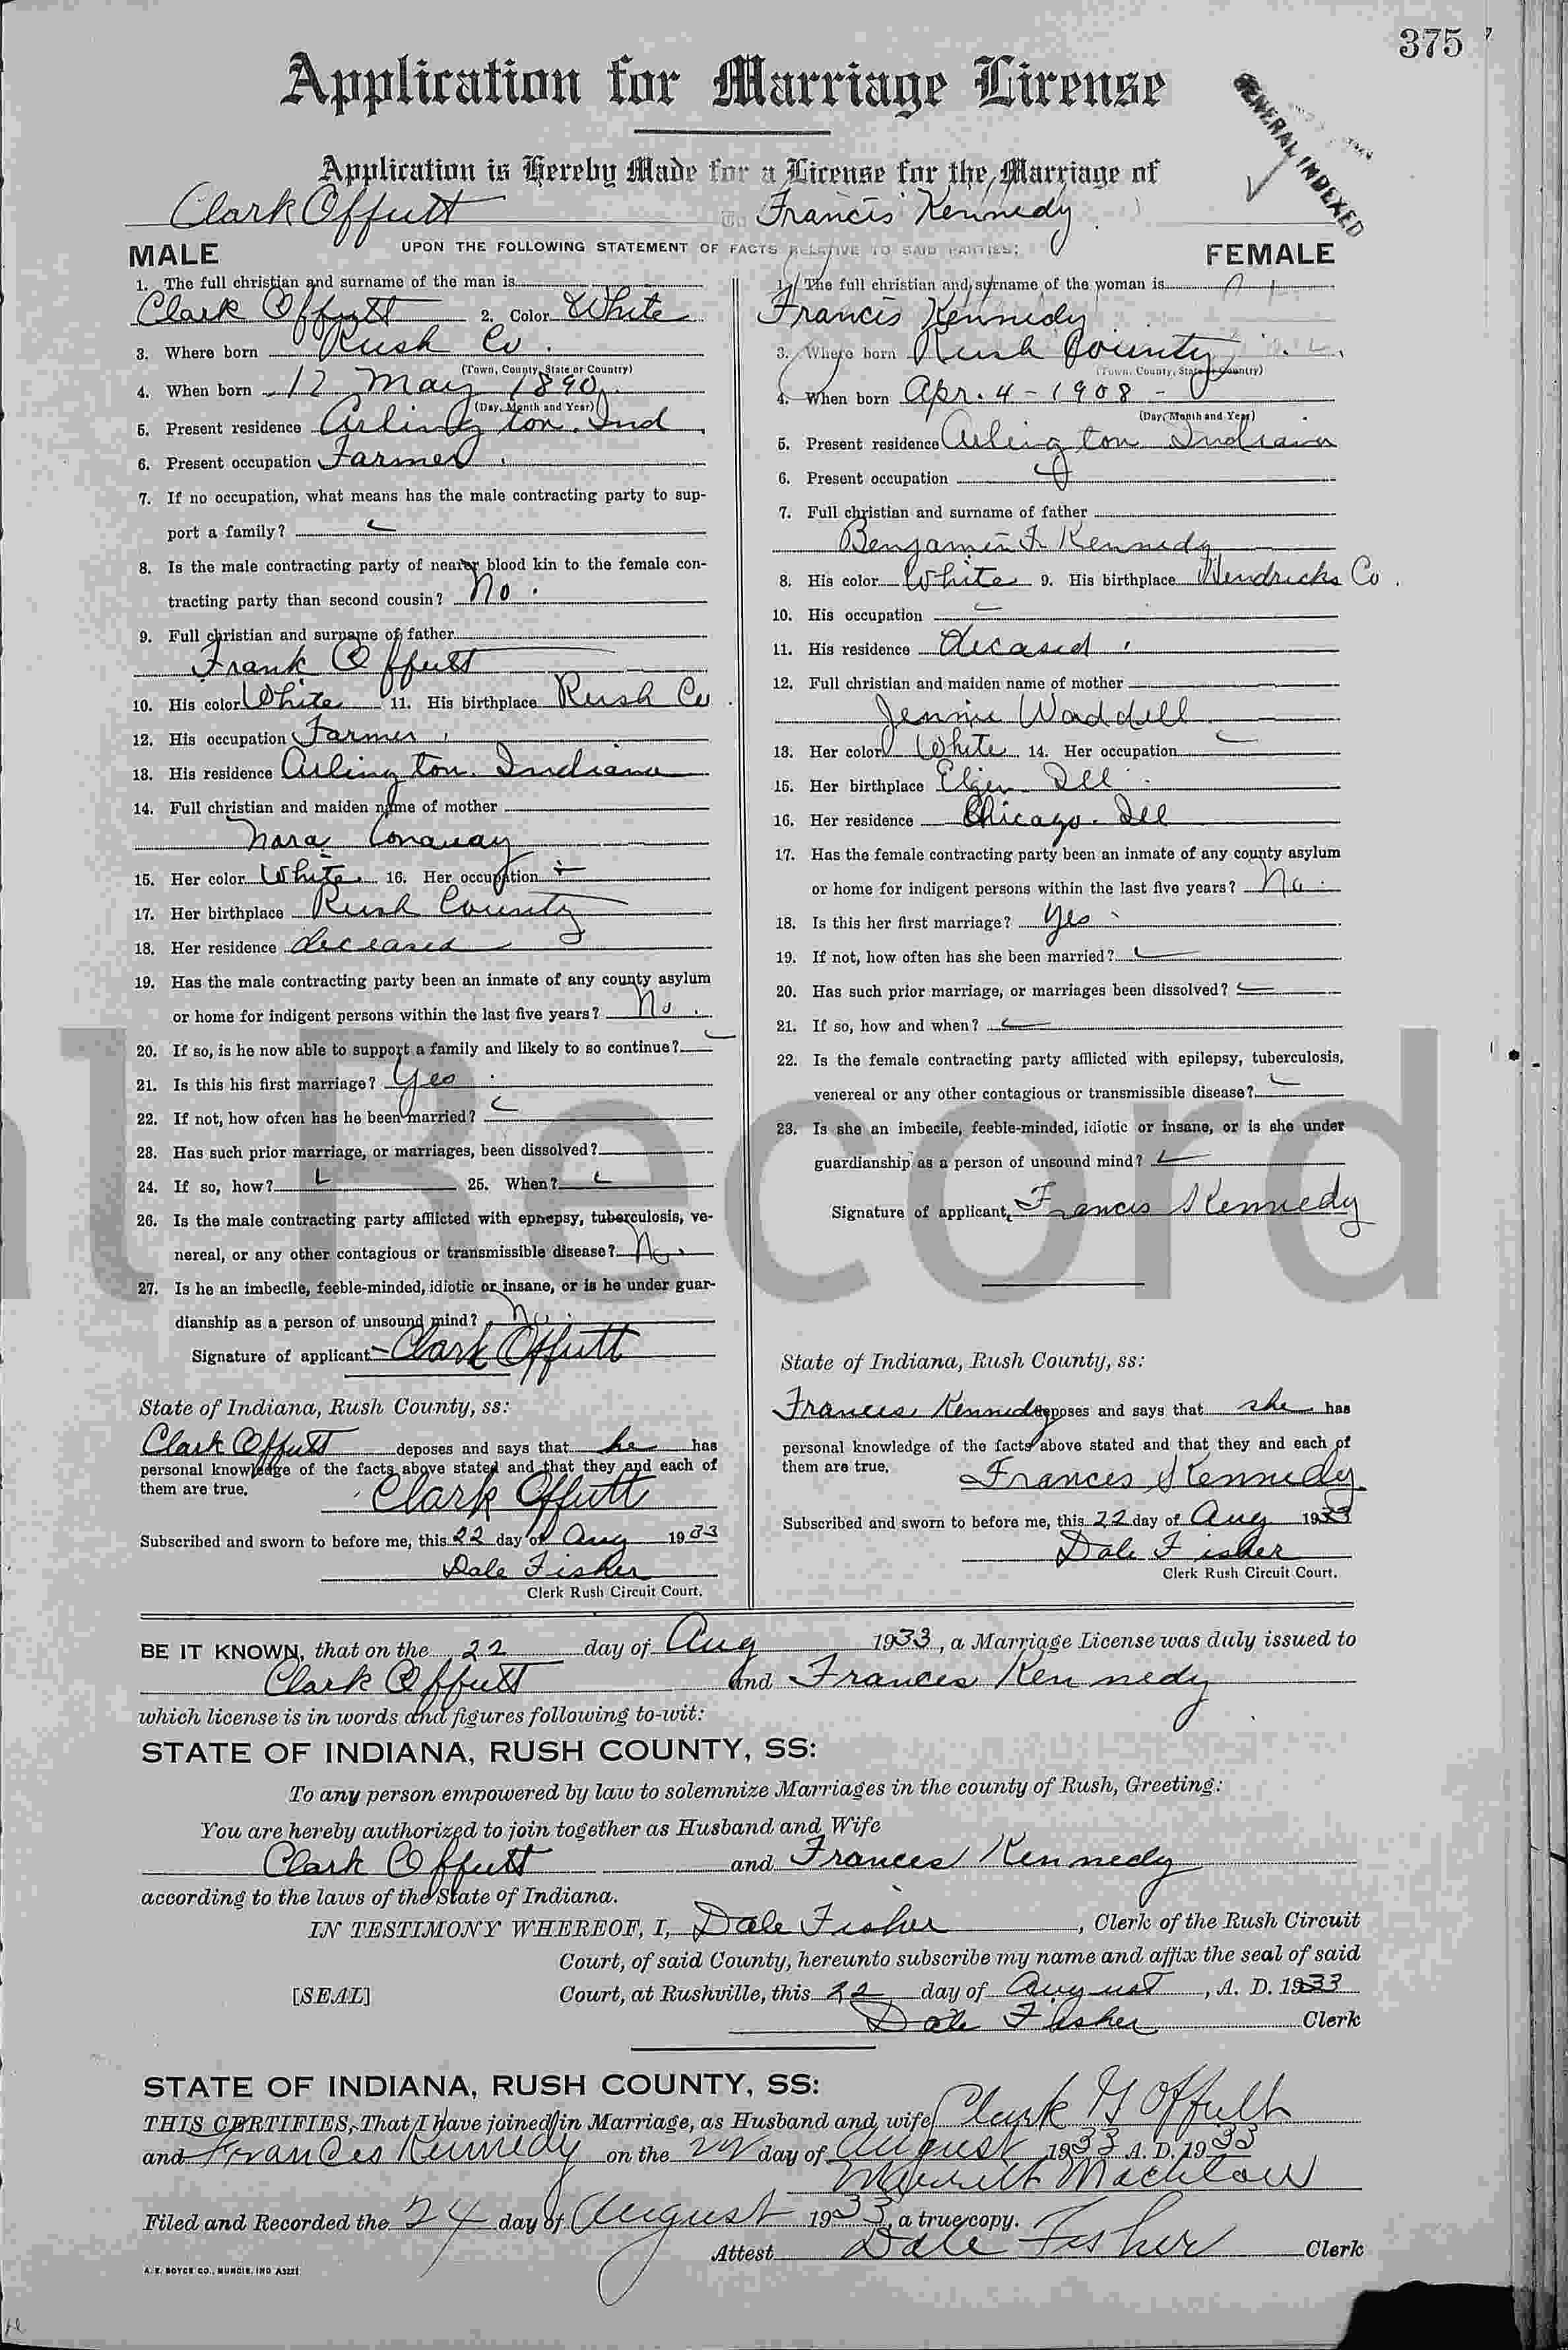 375
Application for Marriage License
GENERAL INDEXED
Application is Hereby Made for a License for the Marriage of
Clark Offutt to Francis Kennedy
MALE UPON THE FOLLOWING STATEMENT OF FACTS RELATIVE TO SAID PARTIES: FEMALE
1. The full christian and surname of the man is
Clark Offutt 2. Color White
3. Where born Rush Co.
(Town, County, State or Country)
4. When born 12 May 1890
(Day, Month and Year)
5. Present residence Arlington. Ind
6. Present occupation Farmer
7. If no occupation, what means has the male contracting party to sup-
port a family?
8. Is the male contracting party of nearer blood kin to the female con-
tracting party than second cousin? No.
9. Full christian and surname of father
Frank Offutt
10. His color White 11. His birthplace Rush Co.
12. His occupation Farmer
13. His residence Arlington. Indiana
14. Full christian and maiden name of mother
Nora Conaway
15. Her color White 16. Her occupation
17. Her birthplace Rush County
18. Her residence deceased
19. Has the male contracting party been an inmate of any county asylum
or home for indigent persons within the last five years? No.
20. If so, is he now able to support a family and likely to so continue?
21. Is this his first marriage? Yes.
22. If not, how often has he been married?
23. Has such prior marriage, or marriages, been dissolved?
24. If so, how? 25. When?
26. Is the male contracting party afflicted with epilepsy, tuberculosis, ve-
nereal, or any other contagious or transmissible disease? No.
27. Is he an imbecile, feeble-minded, idiotic or insane, or is he under guar-
dianship as a person of unsound mind? No.
Signature of applicant Clark Offutt
State of Indiana, Rush County, ss:
Clark Offutt deposes and says that he has
personal knowledge of the facts above stated and that they and each of
them are true.
Clark Offutt
Subscribed and sworn to before me, this 22 day of Aug 1933
Dale Fisher
Clerk Rush Circuit Court.
1. The full christian and surname of the woman is
Francis Kennedy
3. Where born Rush County
(Town, County, State or Country)
4. When born Apr. 4-1908-
(Day, Month and Year)
5. Present residence Arlington Indiana
6. Present occupation
7. Full christian and surname of father
Benjamin F. Kennedy
8. His color White 9. His birthplace Hendricks Co.
10. His occupation
11. His residence decased
12. Full christian and maiden name of mother
Jennie Waddell
13. Her color White 14. Her occupation
15. Her birthplace Elgen Ill
16. Her residence Chicago. Ill
17. Has the female contracting party been an inmate of any county asylum
or home for indigent persons within the last five years? No.
18. Is this her first marriage? Yes
19. If not, how often has she been married?
20. Has such prior marriage, or marriages been dissolved?
21. If so, how and when?
22. Is the female contracting party afflicted with epilepsy, tuberculosis,
venereal or any other contagious or transmissible disease?
23. Is she an imbecile, feeble-minded, idiotic or insane, or is she under
guardianship as a person of unsound mind?
Signature of applicant, Francis Kennedy
State of Indiana, Rush County, ss:
Frances Kennedy deposes and says that she has
personal knowledge of the facts above stated and that they and each of
them are true.
Frances Kennedy
Subscribed and sworn to before me, this 22 day of Aug 1933
Dale Fisher
Clerk Rush Circuit Court.
BE IT KNOWN, that on the 22 day of Aug 1933, a Marriage License was duly issued to
Clark Offutt and Frances Kennedy
which license is in words and figures following to-wit:
STATE OF INDIANA, RUSH COUNTY, SS:
To any person empowered by law to solemnize Marriages in the county of Rush, Greeting:
You are hereby authorized to join together as Husband and Wife
Clark Offutt and Frances Kennedy
according to the laws of the State of Indiana.
IN TESTIMONY WHEREOF, I, Dale Fisher, Clerk of the Rush Circuit
Court, of said County, hereunto subscribe my name and affix the seal of said
[SEAL] Court, at Rushville, this 22 day of August, A. D. 1933
Dale Fisher Clerk
STATE OF INDIANA, RUSH COUNTY, SS:
THIS CERTIFIES, That I have joined in Marriage, as Husband and wife Clark G Offutt
and Frances Kennedy on the 22 day of August 1933 A. D. 1933
Merrill
Filed and Recorded the 24 day of August 1933, a true copy.
Attest Dale Fisher Clerk
A. E. BOYCE CO., MUNCIE, IND A3221
l Record